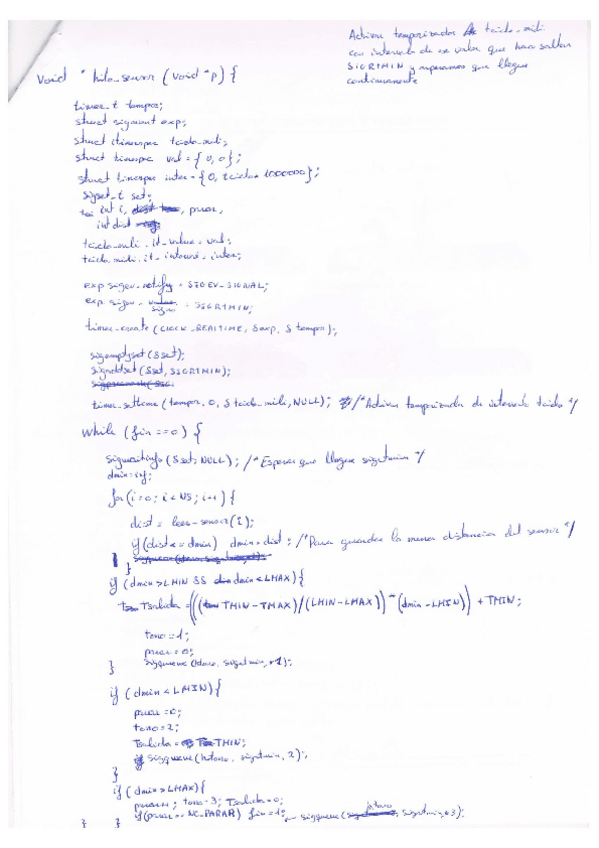 Activar temporizador tciclo_mili
con intervalo de ese valor que hara saltar
SIGRTMIN y esperamos que llegue
continuamente
void * hilo_sensor (void *p) {
timer_t tempor;
struct sigevent exp;
struct itimerspec tciclo_mili;
struct timespec val = {0, 0};
struct timespec inter = {0, tciclo * 1000000};
sigset_t set;
int i, parar,
int dist
tciclo_mili.it_value = val;
tciclo_mili.it_interval = inter;
exp.sigev_notify = SIGEV_SIGNAL;
exp.sigev_signo = SIGRTMIN;
timer_create (CLOCK_REALTIME, &exp, & tempor);
sigemptyset (&set);
sigaddset (&set, SIGRTMIN);
timer_settime (tempor, 0, & tciclo_mili, NULL); /*Activar temporizador de intervalo tciclo */
while (fin ==0) {
sigwaitinfo (&set, NULL); /*Esperar que llegue sigrtmin */
dmin = inf;
for (i=0; i<NS; i++) {
dist = leer_sensor(i);
if (dist <= dmin) dmin = dist; /*Para guardar la menor distancia del sensor */
}
if (dmin > LMIN && dmin < LMAX) {
Tsalida = (((TMIN-TMAX)/(LMIN-LMAX)) * (dmin -LMIN)) + TMIN;
tono =1;
parar =0;
} sigqueue (htono, sigrtmin, 1);
if (dmin < LMIN) {
parar =0;
tono = 2;
Tsalida = TMIN;
sigqueue (htono, sigrtmin, 2);
}
if (dmin > LMAX) {
parar++; tono = 3; Tsalida = 0;
} } if (parar == NC_PARAR) fin = 1; sigqueue (htono, sigrtmin, 3);